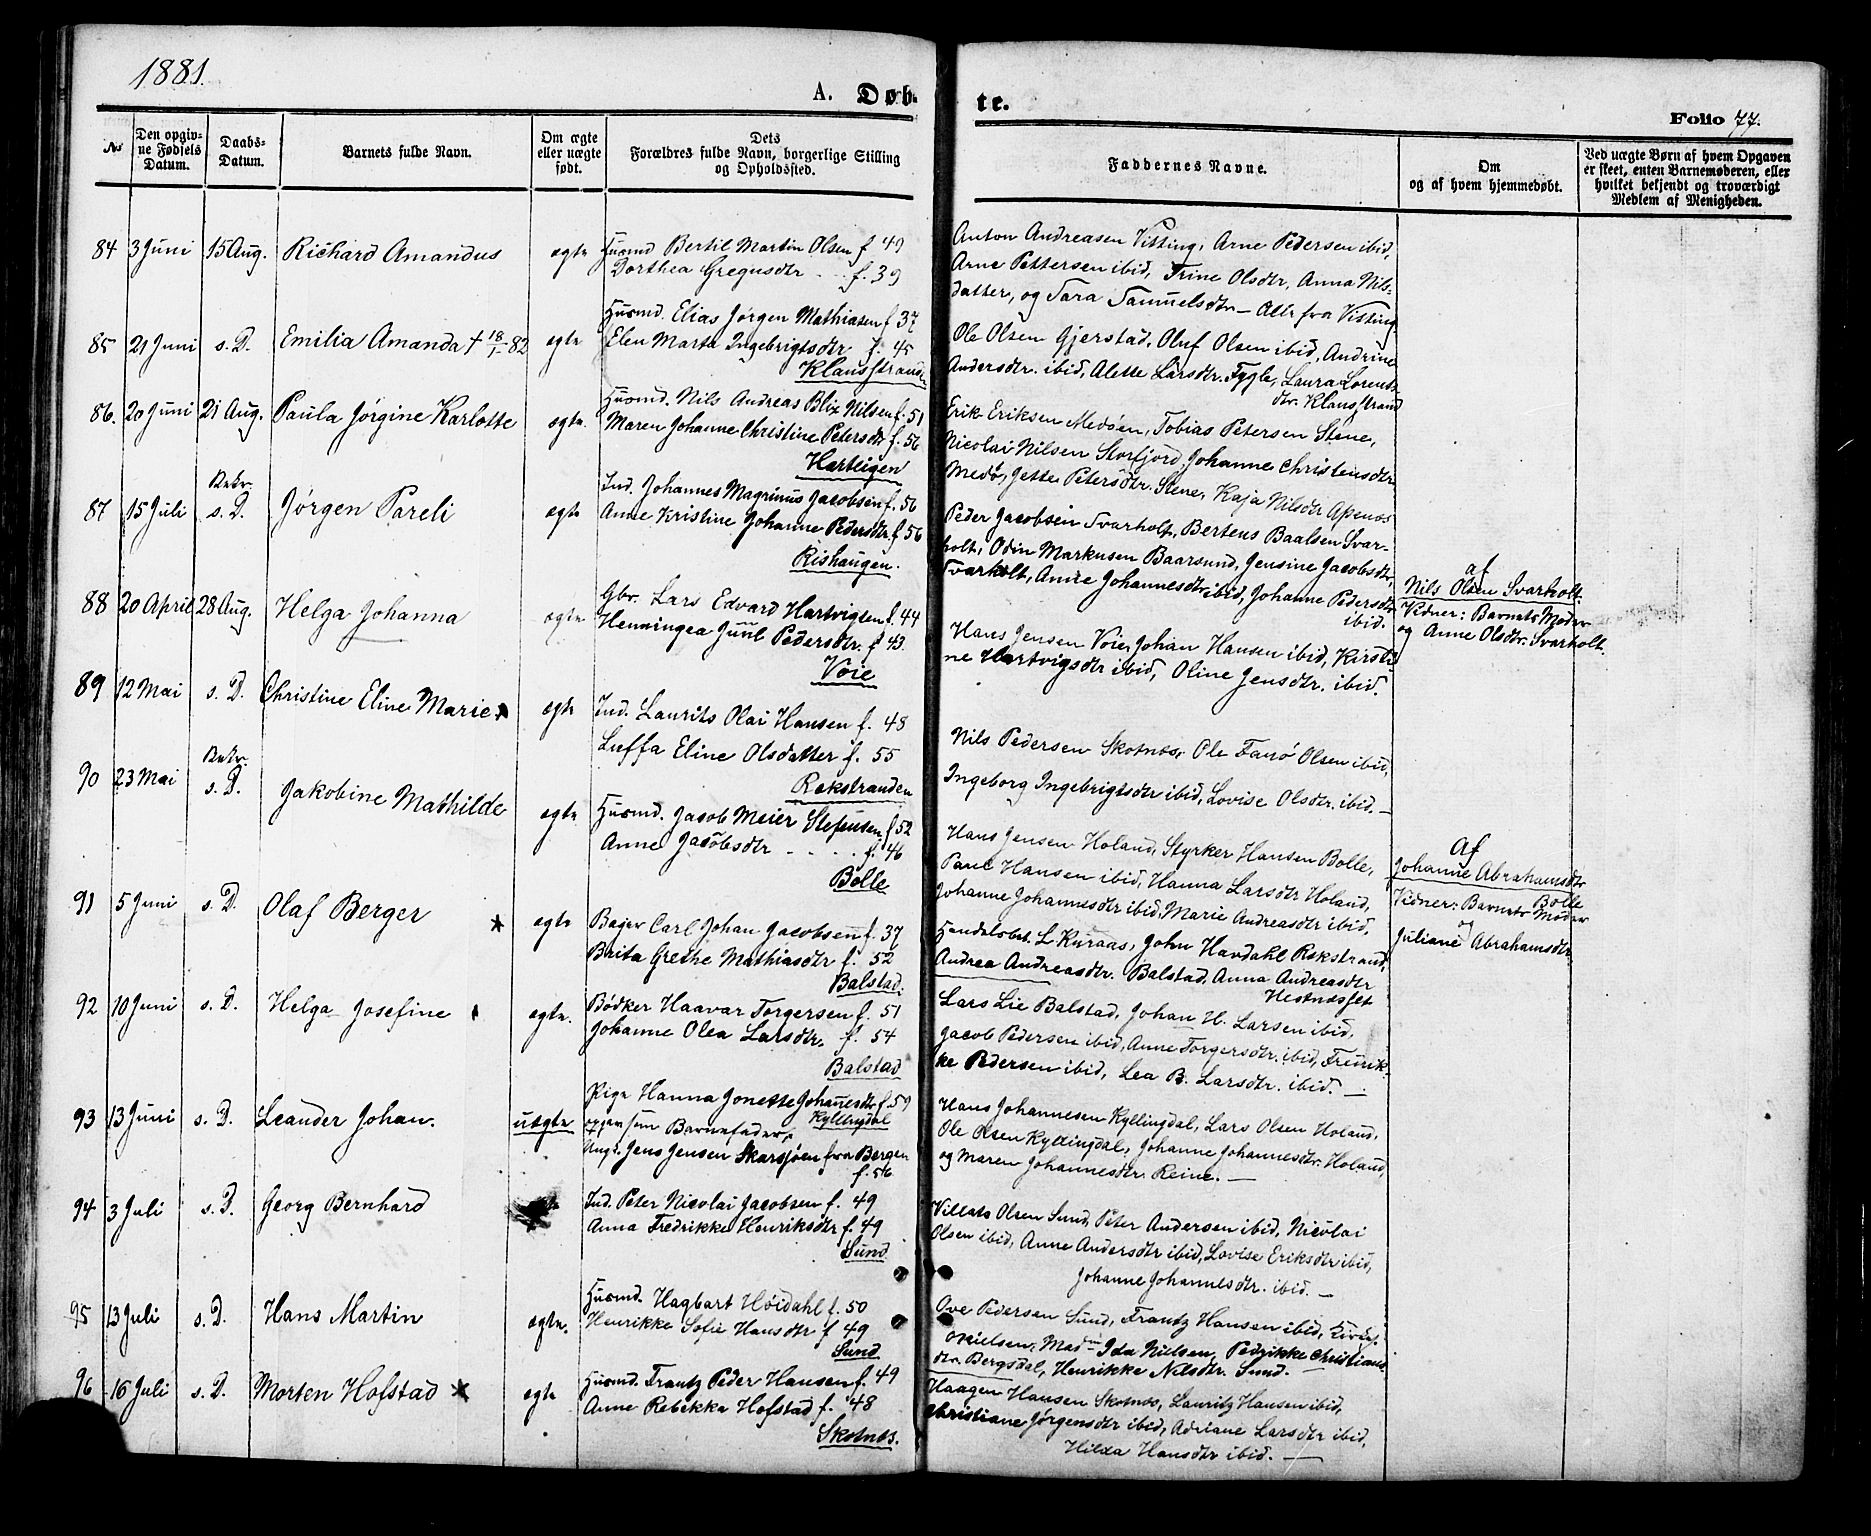 1881.
A. Døb-
te.
Folio 77.
No
Den opgiv-
ne Fødsels
Datum.
Daabs-
Datum.
Barnets fulde Navn.
Om ægte
eller uægte
født.
Dets
Forældres fulde Navn, borgerlige Stilling
og Opholdssted.
Faddernes Navne.
Om
og af hvem hjemmedøbt.
Ved uægte Børn af hvem Opgaven
er skeet, enten Barnemoderen, eller
hvilket bekjendt og troværdigt
Medlem af Menigheden.
84 3 Juni 15 Aug. Richard Amandus ægte
Husmd Bertil Martin Olsen f 49
Dorthea Gregusdtr - - - f. 39
Anton Andreasen Vitting, Arne Pedersen ibid,
Arne Pettersen ibid, Trine Olsdtr, Anna Nils-
datter, og Sara Samuelsdtr - Alle fra Vitting
85 21 Juni s. D. Emilia Amanda † 18/1-82 ægte
Husmd. Elias Jørgen Mathiasen f 37
Elen Marta Ingebrigtsdtr f. 45
Klausstranden
Ole Olsen Gjerstad, Oluf Olsen ibid, Andrine
Andersdtr. ibid, Alette Larsdtr. Fygle, Laura Lorents-
dtr. Klausstrand
86. 20 Juni 21 Aug. Paula Jørgine Karlotte ægte.
Husmd. Nils Andreas Blix Nilsen f. 51
Maren Johanne Christine Petersdtr f. 56
Harteigen
Erik Eriksen Medøen, Tobias Petersen Stene,
Nicolai Nilsen Storfjord, Johanne Christensdtr
Medø, Jette Petersdtr. Stene, Kaja Nilsdtr Apenæs
87 15 Juli Bekr. s. D. Jørgen Pareli ægte
Ind. Johannes Magrinus Jacobsen f. 56
Anne Kristine Johanne Pedersdtr. f 56
Rishaugen.
Peder Jacobsen Svarholt, Bertens Baalsen Svar-
holt, Odin Markusen Baarsund, Jensine Jacobsdtr,
Svarholt, Anne Johannesdtr ibid, Johanne Pedersdtr
ibid.
af
Nils Olsen Svarholt.
Vidner: Barnets Moder
og Anne Olsdtr. Svarholt.
88 20 April 28 Aug. Helga Johanna ægte
Gbr. Lars Edvard Hartvigsen f. 44
Henningea Juul Pedersdtr. f 43.
Voie
Hans Jensen Voie, Johan Hansen ibid, Kirsti-
ne Hartvigsdtr ibid, Oline Jensdtr. ibid.
89 12 Mai s. D. Christine Eline Marie ægte
Ind. Laurits Olai Hansen f. 48
Luffa Eline Olsdatter f. 55
Rekstranden
Nils Pedersen Skotnæs, Ole Farsø Olsen ibid,
Ingeborg Ingebrigtsdtr ibid, Lovise Olsdtr. ibid. -
90 23 Mai Bekr. s. D. Jakobine Mathilde ægte
Husmd. Jacob Meier Stefensen f 52
Anne Jacobsdtr - - - . f. 46
Bolle
Hans Jensen Holand, Styrker Hansen Bolle,
Parel Hansen ibid, Hanna Larsdtr Holand,
Johanne Johannesdtr ibid, Marie Andreasdtr ibid,
Af
Johanne Abrahamsdtr
Bolle
Vidner: Barnets Moder
og
Juliane Abrahamsdtr
91 5 Juni s. D. Olaf Berger ægte
Bager Carl Johan Jacobsen f. 37
Brita Grethe Mathiasdtr f. 52
Balstad.
Handelsbet. L Kuraas, John Havdahl Rekstrand,
Andrea Andreasdtr. Balstad, Anna Andreasdtr
Hestnæsset
92 10 Juni s. D. Helga Josefine ægte.
Bødker Haavar Torgersen f. 51
Johanne Olea Larsdtr. f. 54
Balstad
Lars Lie Balstad, Johan H. Larsen ibid,
Jacob Pedersen ibid, Anne Torgersdtr. ibid, Fredrik-
ke Pedersen ibid, Lea B. Larsdtr. ibid. -
93 13 Juni s. D. Leander Johan. uægte
Pige Hanna Jonette Johansdtr f. 59
opgiv som Barnefader, Kyllingdal
Ungk. Jens Jensen Skarsjøen fra Bergen
f. 56
Hans Johannesen Kyllingdal, Lars Olsen Holand,
Ole Olsen Kyllingdal, Johanne Johannesdtr. Holand,
og Maren Johannesdtr. Reine. -
94 3 Juli s. D. Georg Bernhard
Ind. Peter Nicolai Jacobsen f. 49
Anna Fredrikke Henriksdtr f. 49
Sund
Villats Olsen Sund, Peter Andersen ibid, Nicolai
Olsen ibid, Anne Andersdtr ibid, Lovise Eriksdtr ibid,
Johanne Johannesdtr. ibid. -
95 13 Juli s. D. Hans Martin ægte.
Husmd. Hagbart Høidahl f. 50
Henrikke Sofie Hansdtr f 49
Sund
Ove Pedersen Sund, Frantz Hansen ibid,
Nielsen, Mad. Ida Nielsen, Pedrikke Christians
dtr. Bergsdal, Henrikke Nilsdtr. Sund. -
96 16 Juli s. D. Morten Hofstad ægte
Husmd. Frantz Peder Hansen f. 49
Anne Rebekka Hofstad f. 48
Skotnæs.
Haagen Hansen Skotnæs, Lauritz Hansen ibid,
Christiane Jørgensdtr ibid, Adriane Larsdtr ibid,
Hilda Hansdtr ibid. -